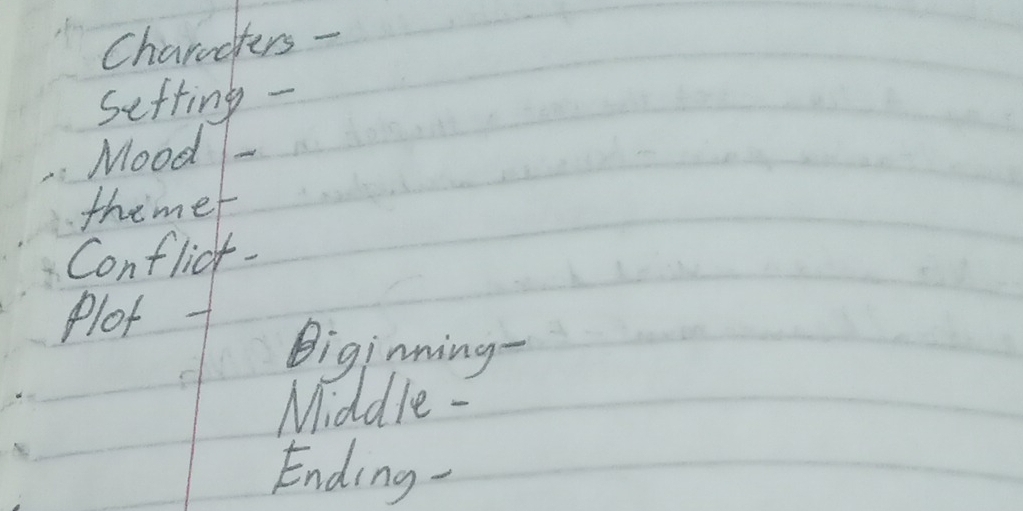 Characters -
Setting -
Mood -
theme -
Conflict -
Plot -
Biginning -
Middle -
Ending -